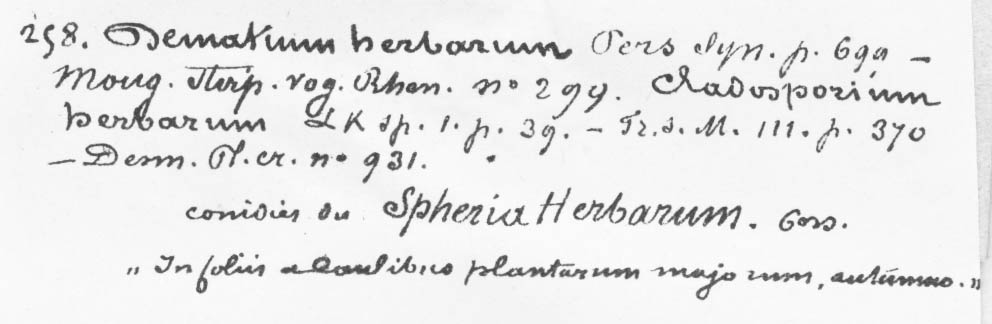 258. Dematium herbarum Pers Syn. p. 699 –
Moug. Stirp. Vog. Rhen. n° 299. Cladosporium
herbarum LK sp. 1. p. 39. – Fr. s. M. III. p. 370
– Desm. Pl. cr. n° 931.
conidies du Spheria Herbarum.
„ In foliis a Caulibus plantarum majorum, autumno. "